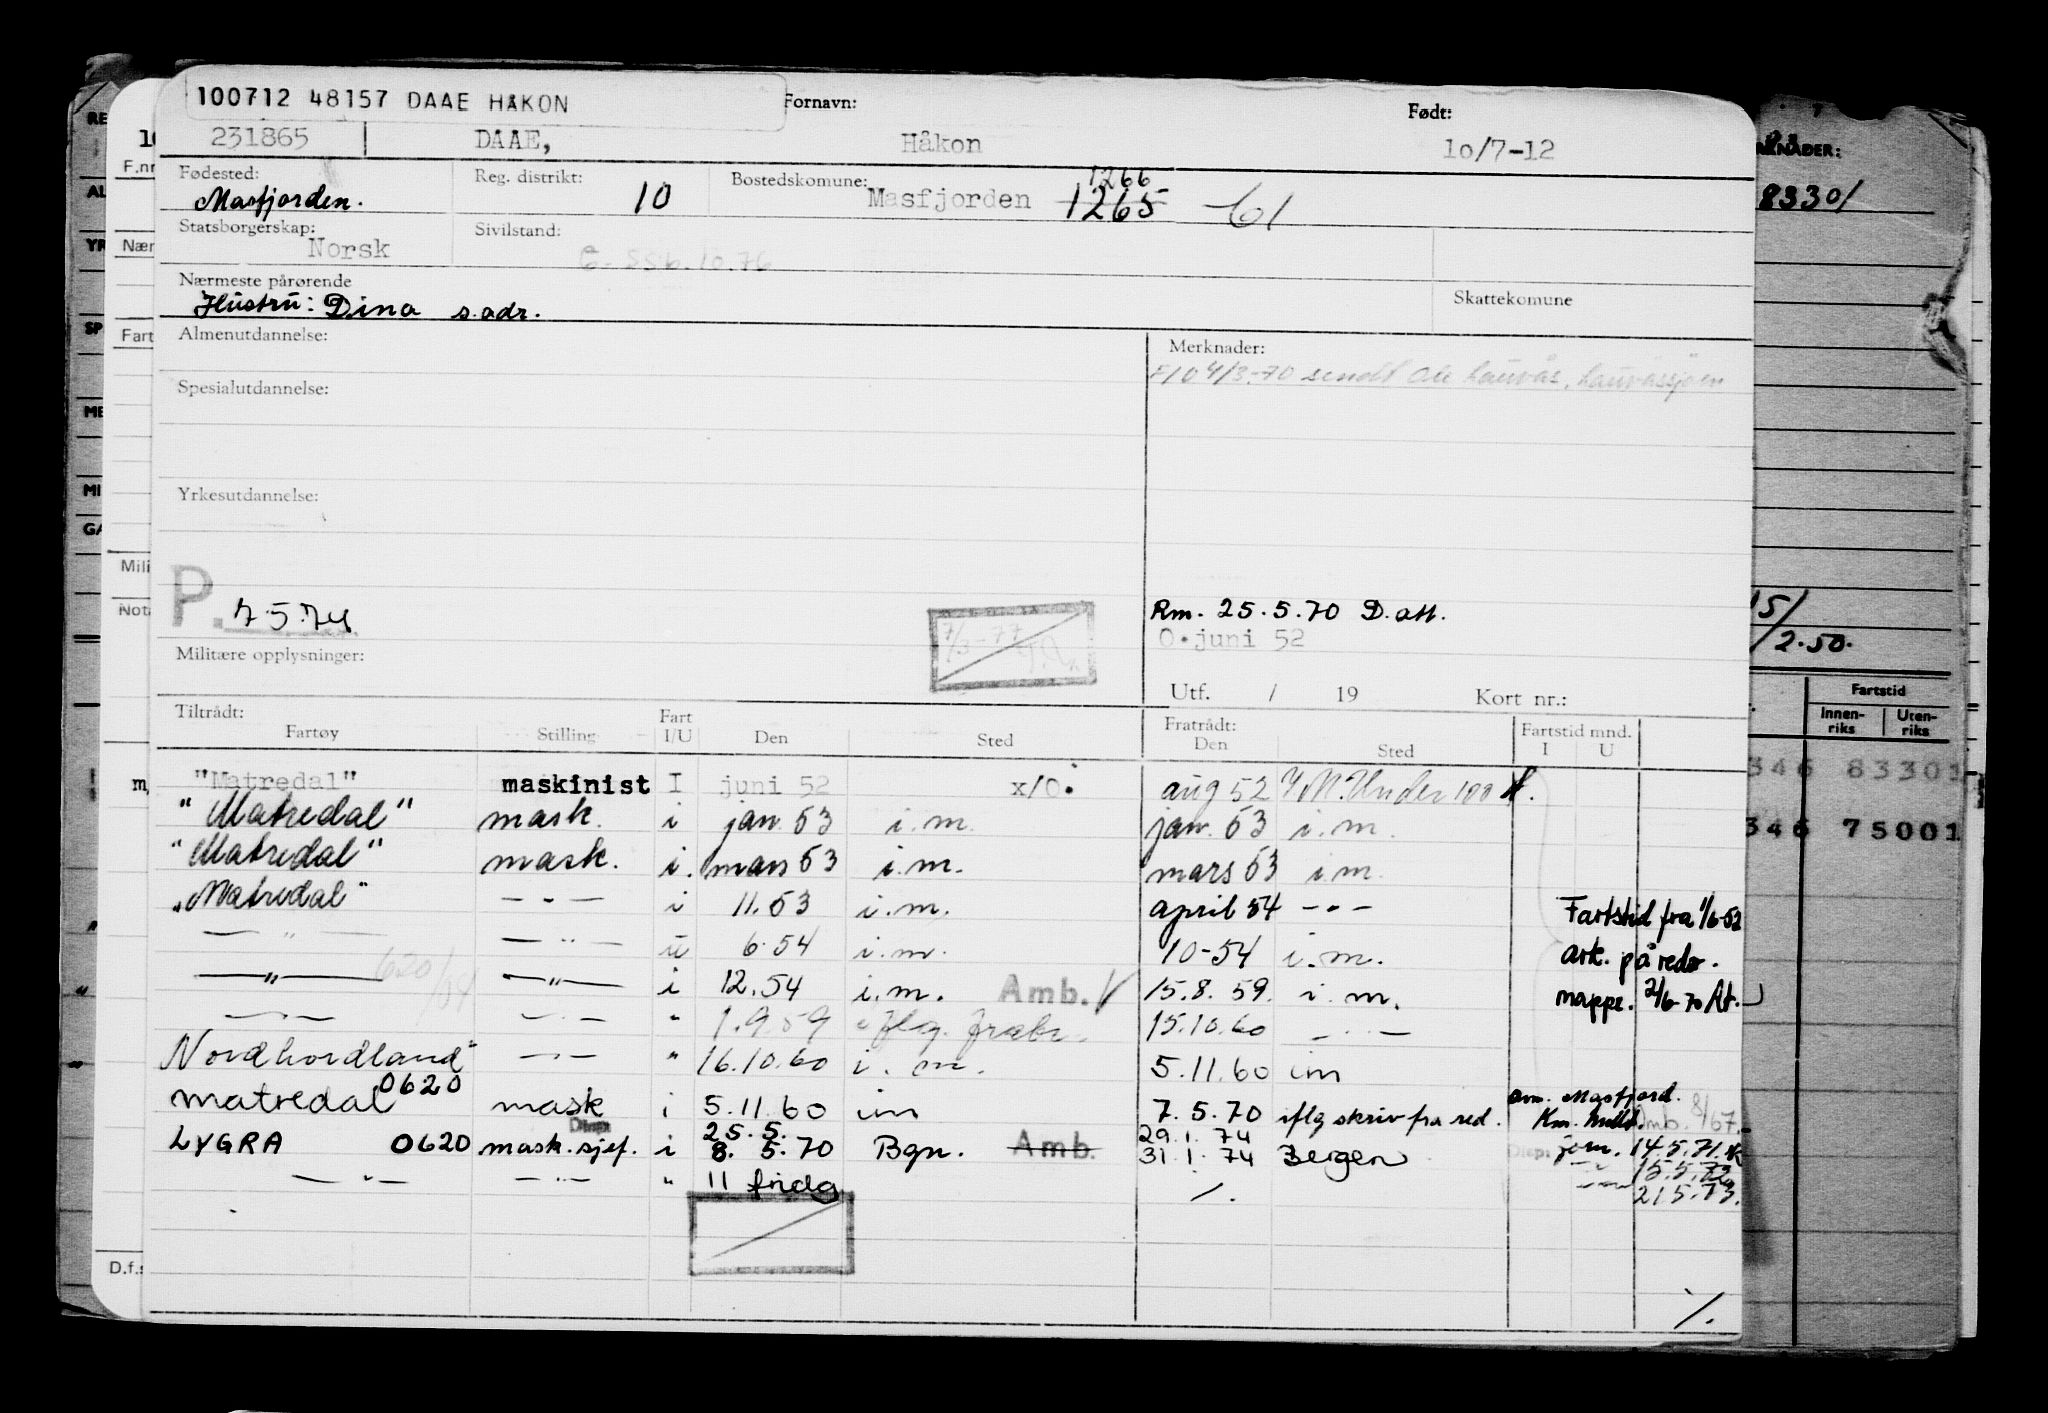 100712 48157 DAAE HÅKON
Fornavn:
Født:
231865 DAAE, Håkon 10/7-12
Fødested: Masfjorden.
Reg. distrikt: 10
Bostedskomune: Masfjorden 1265 1266 -61
Statsborgerskap: Norsk
Sivilstand: G- SSB.10.76
Nærmeste pårørende
Hustru: Dina s.adr.
Skattekomune
Almenutdannelse:
Merknader:
F/O 4/3-70 sendt Ole Lauvås, Lauvåssjøen
Spesialutdannelse:
Yrkesutdannelse:
P. 7.5.74
7/3-77
Rm. 25.5.70 D.att.
O.juni 52
Militære opplysninger:
Utf. / 19 Kort nr.:
Tiltrådt: Fartøy Stilling Fart I/U Den Sted Fratrådt: Den Sted Fartstid mnd. I U
"Matredal" maskinist I juni 52 x/O. aug 52 Under 100
"Matredal" mask. i jan. 53 i.m. jan. 53 i.m.
"Matredal" mask. i. mars 53 i.m. mars 53 i.m.
"Matredal" — " — i 11.53 i.m. april 54 — " —
— " — — " — u 6.54 i.m. 10-54 i.m.
— " — 620/54 — " — i 12.54 i.m. Amb. 15.8.59. i.m.
— " — — " — " 1.9.59 iflg. 15.10.60 — " —
Nordhordland" — " — " 16.10.60 i.m. 5.11.60 im
matredal 0620 mask i 5.11.60 im 7.5.70 iflg skriv fra red.
LYGRA 0620 mask.sjef. Disp: i 25.5. 8. 5.70 Bgn. Amb. 29.1.74 31.1.74 Bergen
— " — — " — " 11 fridg ./.
Fartstid fra 1/6-52
ark. på reder.
mappe. 2/6-70 At.
om. Masfjord.
Amb. 8/67.
Disp: 14.5.71.
15.5.72
21.5.73.
./.
RE
AL
YR
SP
ME
MI
GA
F.nr
Nær
Fart
Mili
Not
D.f.s
8330/
/2.50.
Fartstid
Innen-riks Uten-riks
346 83301
346 75001